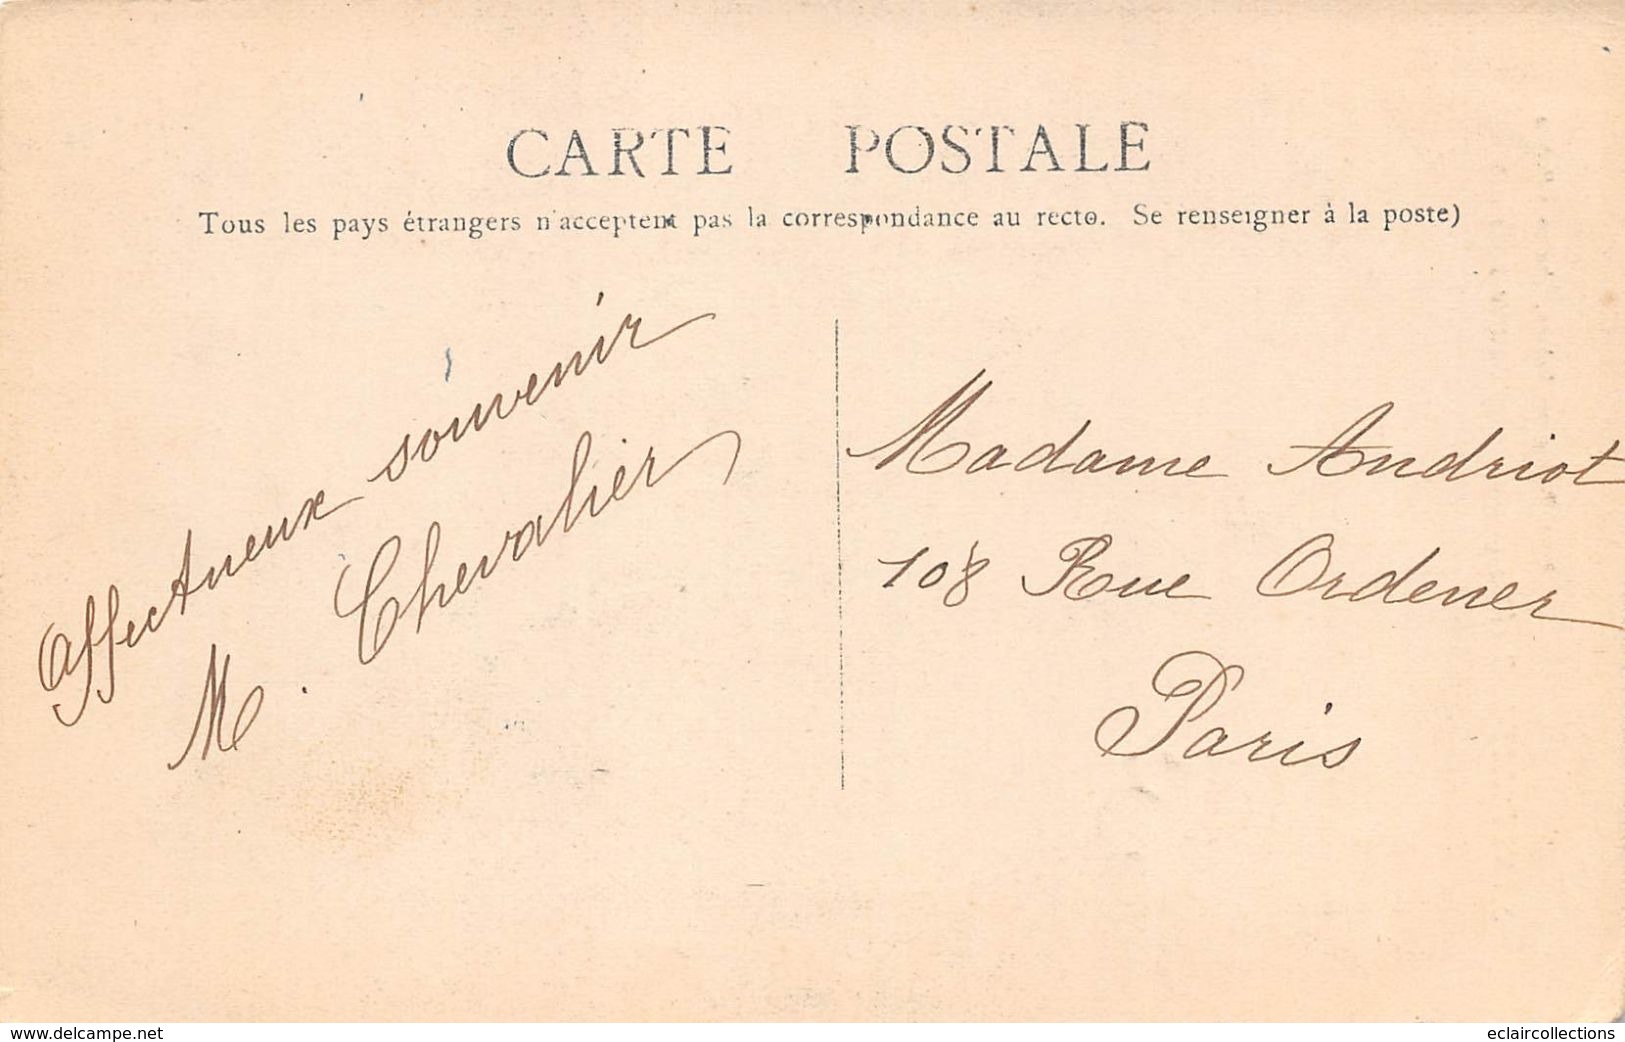 CARTE POSTALE
Tous les pays étrangers n'acceptent pas la correspondance au recto. Se renseigner à la poste)
Affectueux souvenir
M. Chevalier
Madame Andriot
108 Rue Ordener
Paris
www.delcampe.net
eclaircollections